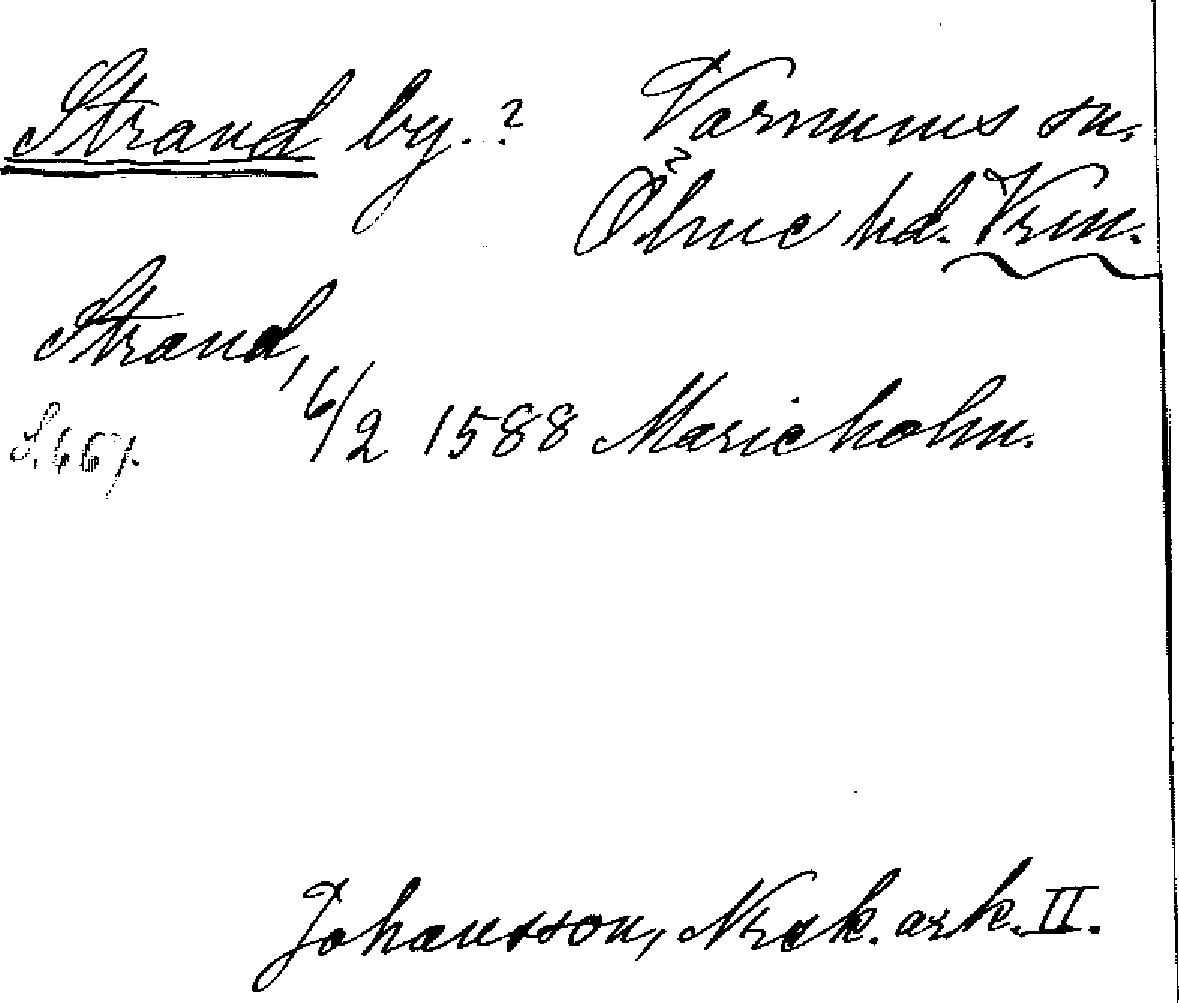 Strand by.? Varnums sn.
Ölme hd. Vrm.
Strand,
6/2 1588 Marieholm.
S. 667.
Johansson, Nrck. ark. II.